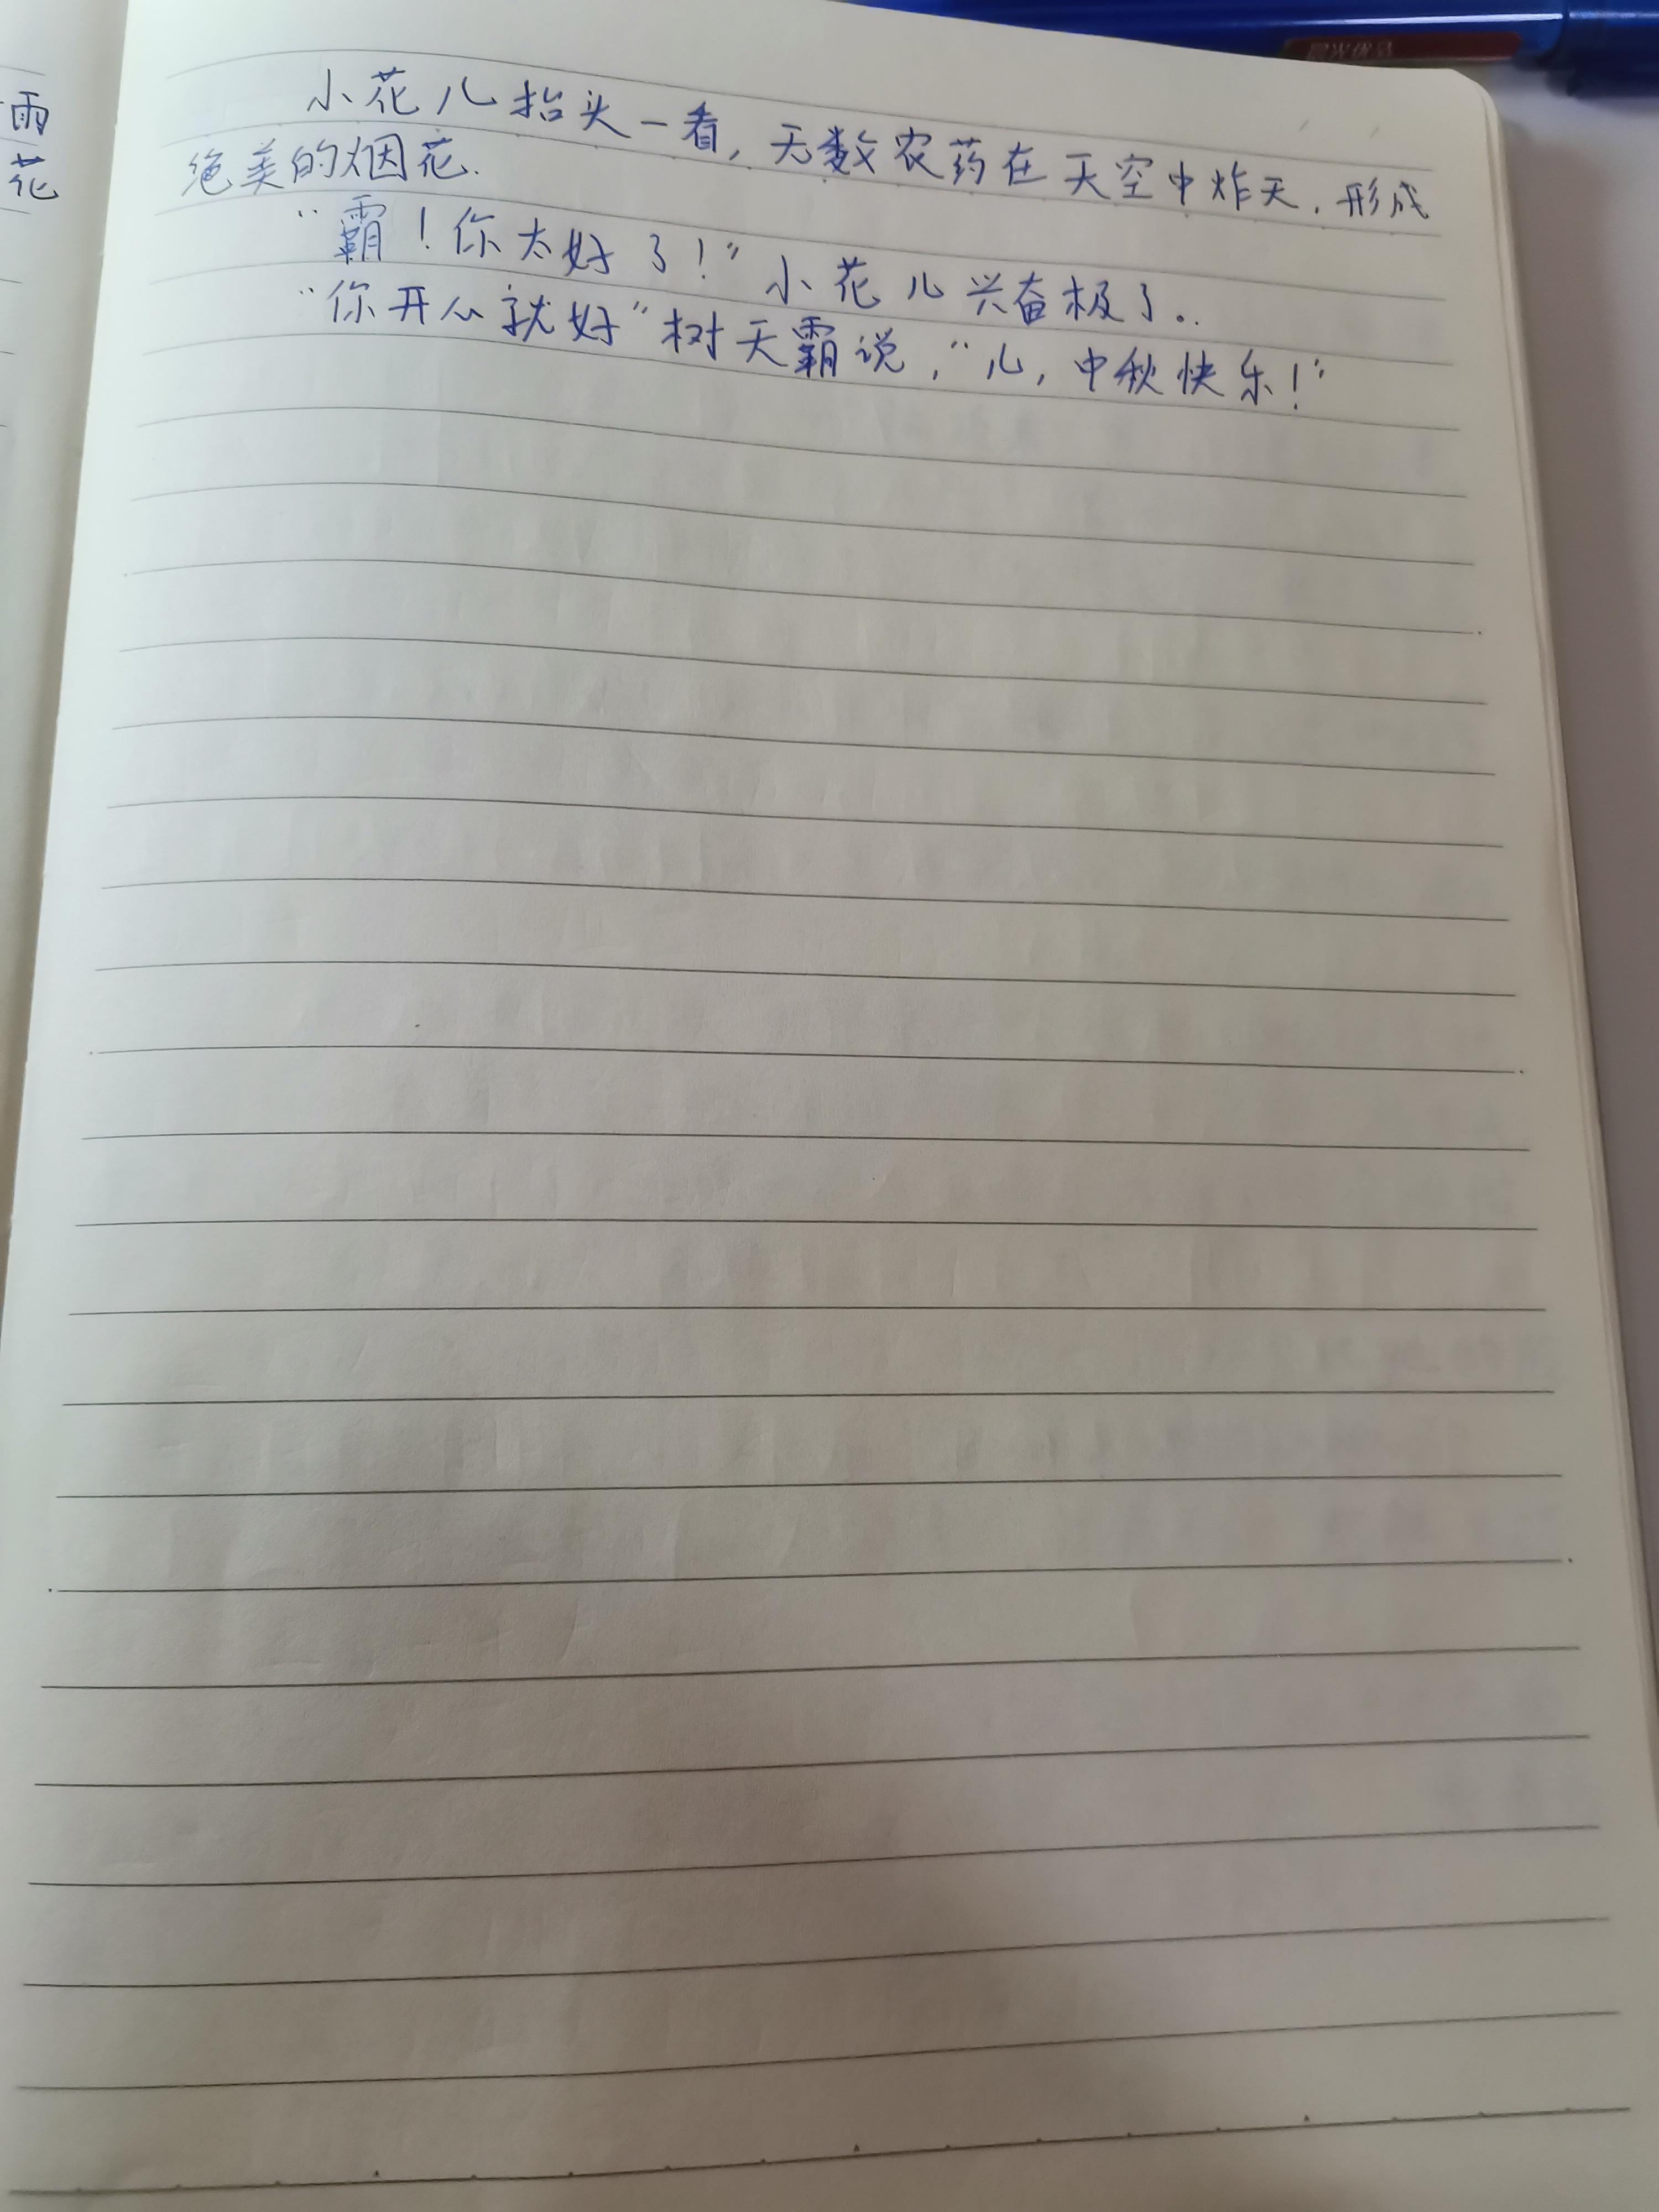 雨
花
小花儿抬头一看,无数农药在天空中炸天.形成
绝美的烟花.
“霸!你太好了!”小花儿兴奋极了..
“你开心就好”树天霸说,“儿,中秋快乐!”
晨光优品